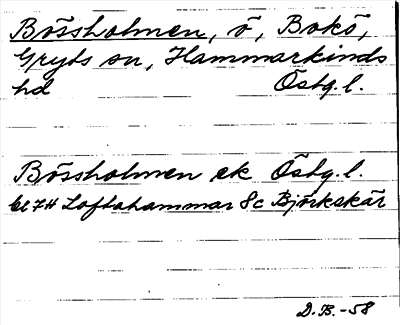 Bössholmen, ö, Bokö,
Gryts sn, Hammarkinds
hd Östg. l.
Bössholmen ek Östg. l.
bl 74 Loftahammar 8c Björkskär
D.B.-58